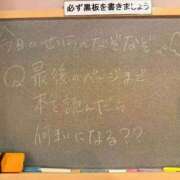 必ず黒板を書きましょう
今日のせいらのなぞなぞ
Q 最後のページまで
本を読んだら
何まいになる??